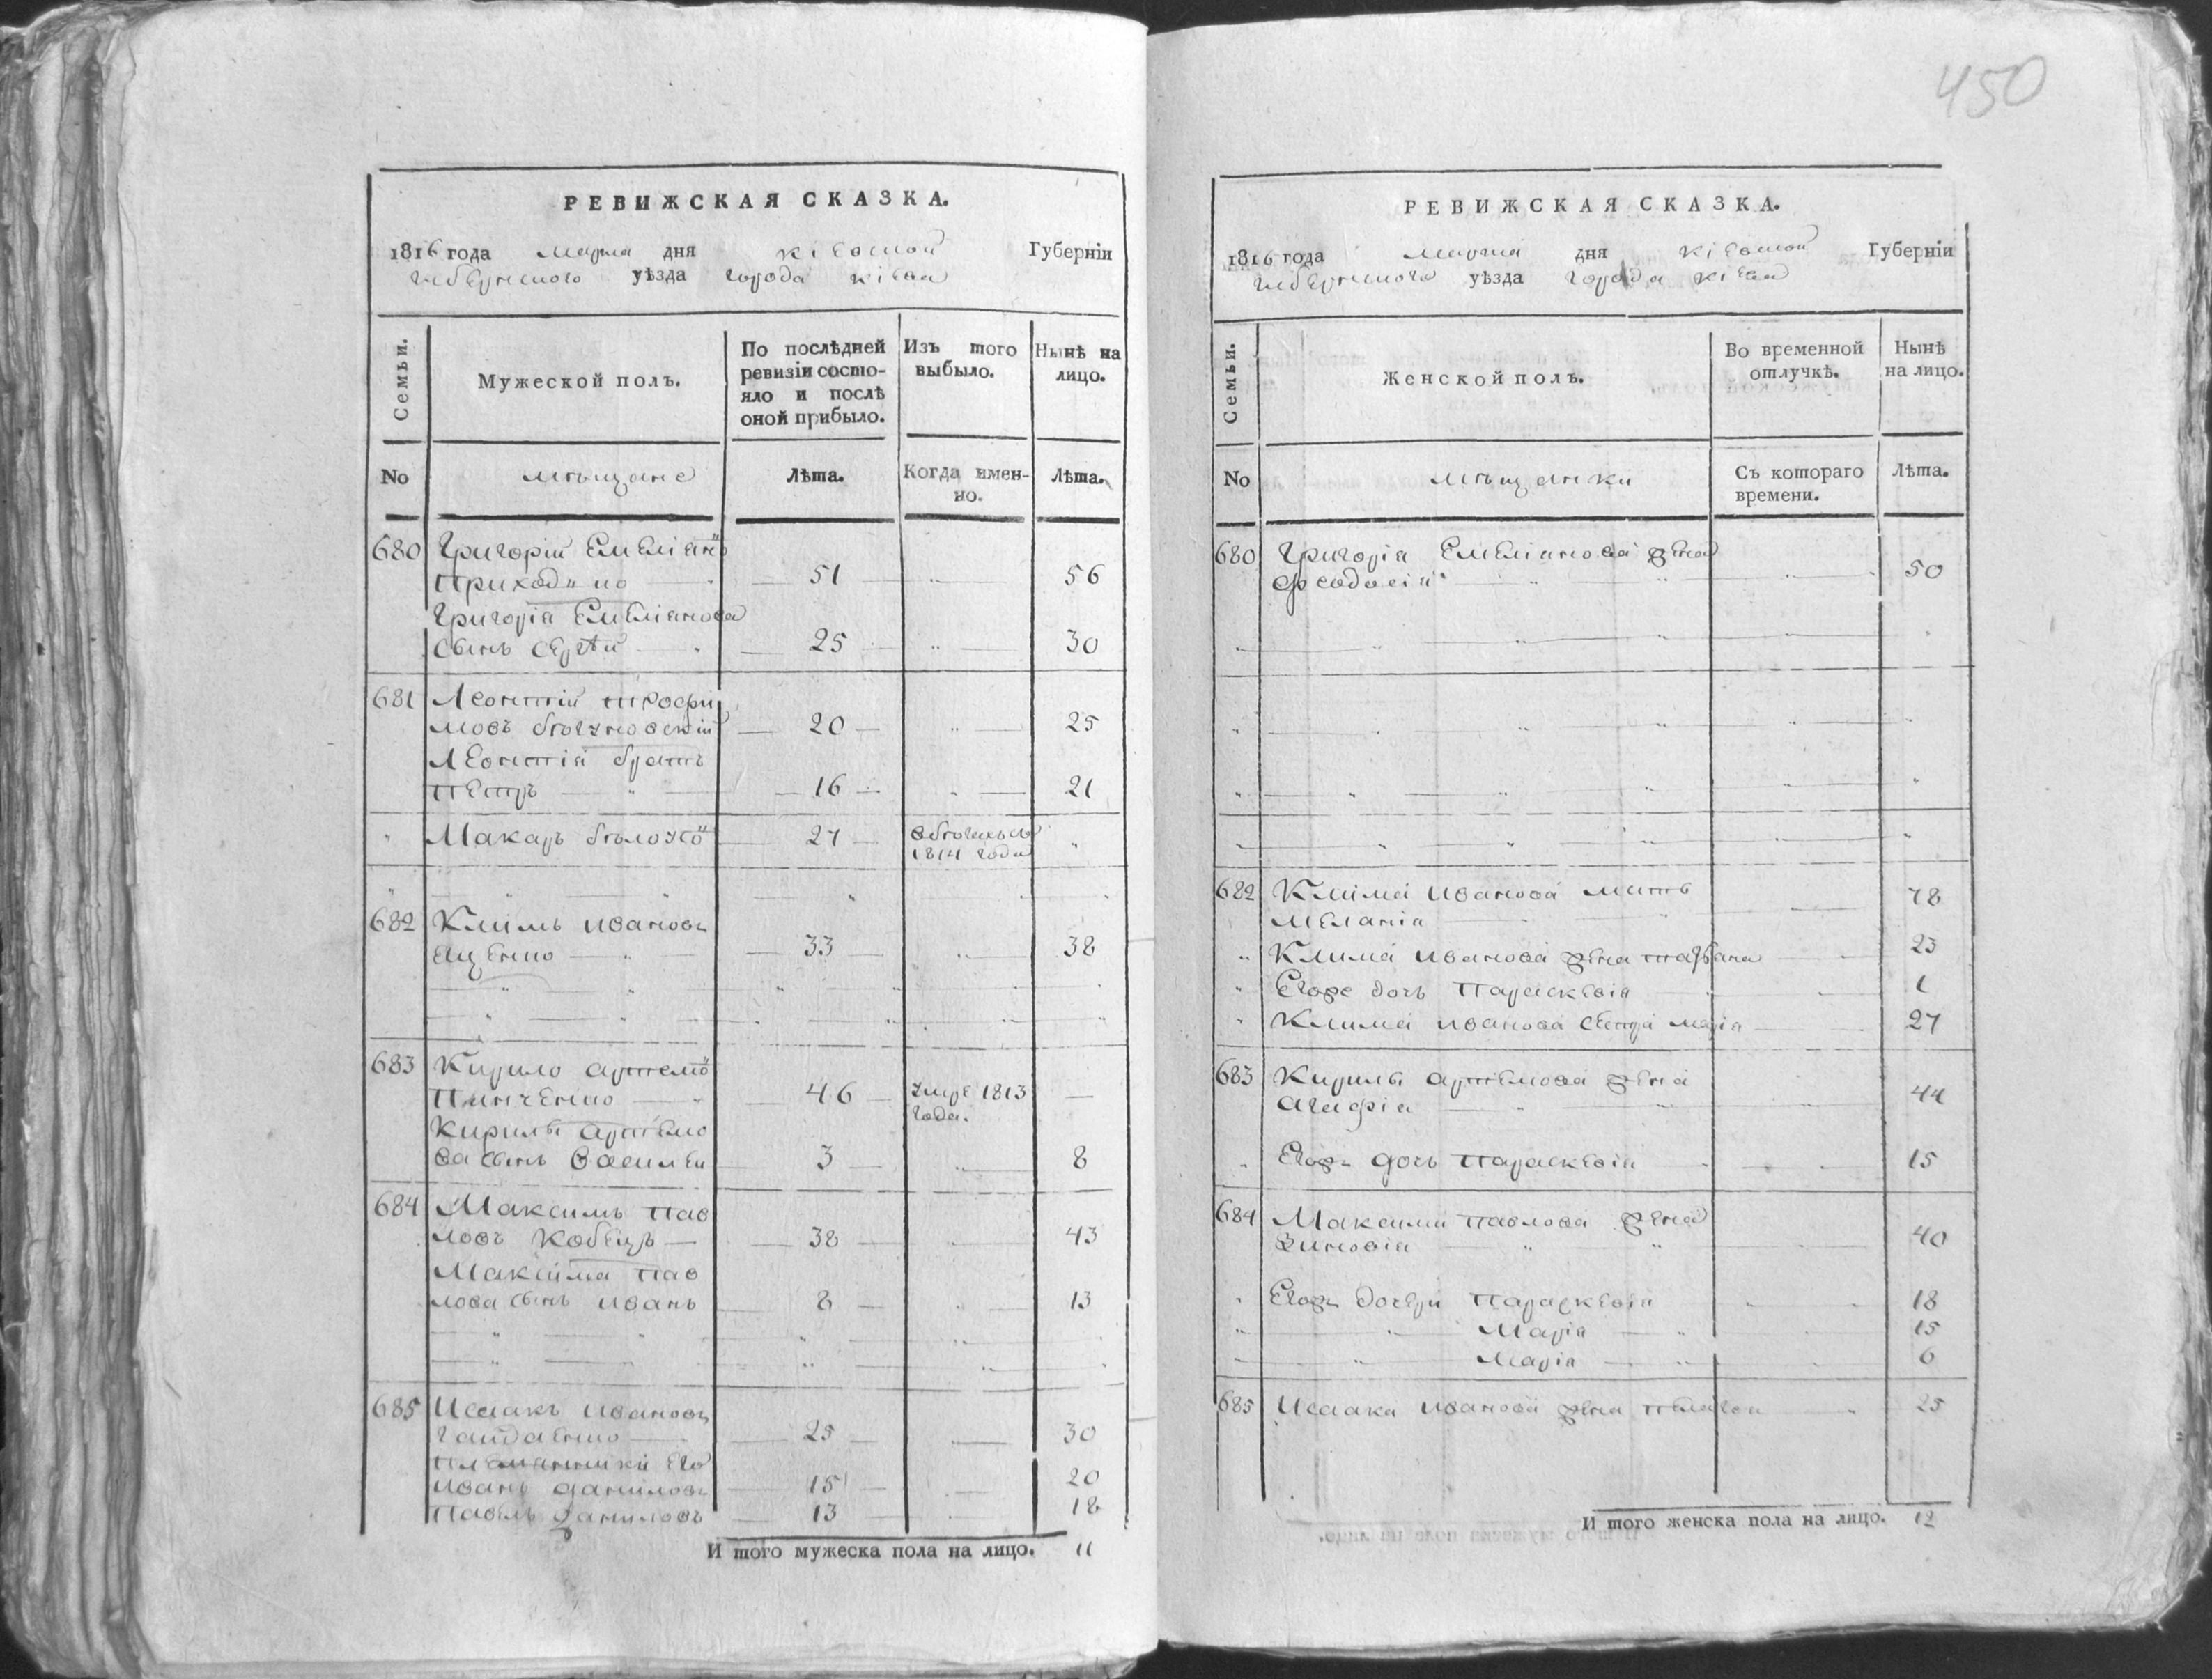 РЕВИЖСКАЯ СКАЗКА.
1816 года марта дня кіевской Губерніи
уѣзда города кіева
Семьи.
Мужеской полъ.
По послѣдней
ревизіи состо-
яло и послѣ
оной прибыло.
Изъ того
выбыло.
Нынѣ на
лицо.
No
мѣщане
Лѣта.
Когда имен-
но.
Лѣта.
680 Григорій Емеліяно
Приходко 51 56
Григорія Емеліянова
сынъ Сергѣй 25 30
681 Леонтій Трофи
мовъ 20 25
Леонтія братъ
Петръ 16 21
Макаръ 27 в бегахъ съ
1814 года
682 Климъ Ивановъ
Ященко 33 38
683 Кирило Артемо
Пинченко 46 умре 1813
года.
Кирилы Артемо
ва сынъ Василей 3 8
684 Максимъ Пав
ловъ Кобецъ 38 43
Максима Пав
лова сынъ Иванъ 8 13
685 Исаакъ Ивановъ
Гайдаенко 25 30
племянники его
Иванъ Даниловъ 15 20
Павелъ Даниловъ 13 18
И того мужеска пола на лицо. 11
450
РЕВИЖСКАЯ СКАЗКА.
1816 года марта дня кіевской Губерніи
уѣзда города кіева
Семьи.
Женской полъ.
Во временной
отлучкѣ.
Нынѣ
на лицо.
No
мѣщанки
Съ котораго
времени.
Лѣта.
680 Григорія Емеліянова жена
Феодосія 50
682 Клима Иванова мать
Меланія 78
Клима Иванова жена Татьяна 23
Егоже дочь Параскевія 1
Клима Иванова сестра Марія 27
683 Кирилы Артемова жена
Агафія 44
Егожъ дочь Параскевія 15
684 Максима Павлова жена
Зиновія 40
Егожъ дочери Параскевія 18
Марія 15
Марія 6
685 Исаака Иванова жена Пелагея 25
И того женска пола на лицо. 12